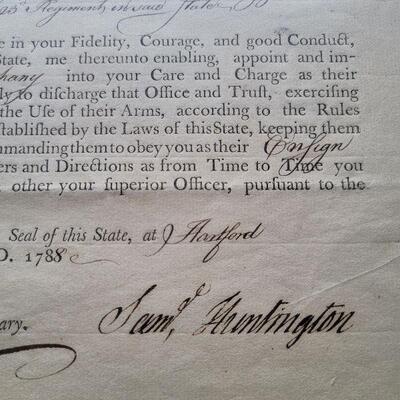 23d Regiment in said State
e in your Fidelity, Courage, and good Conduct,
State, me thereunto enabling, appoint and im-
pany into your Care and Charge as their
ly to discharge that Office and Trust, exercising
the Use of their Arms, according to the Rules
stablished by the Laws of this State, keeping them
mmanding them to obey you as their Ensign
ers and Directions as from Time to Time you
other your superior Officer, pursuant to the
Seal of this State, at Hartford
D. 1788
Sam.l Huntington
ary.